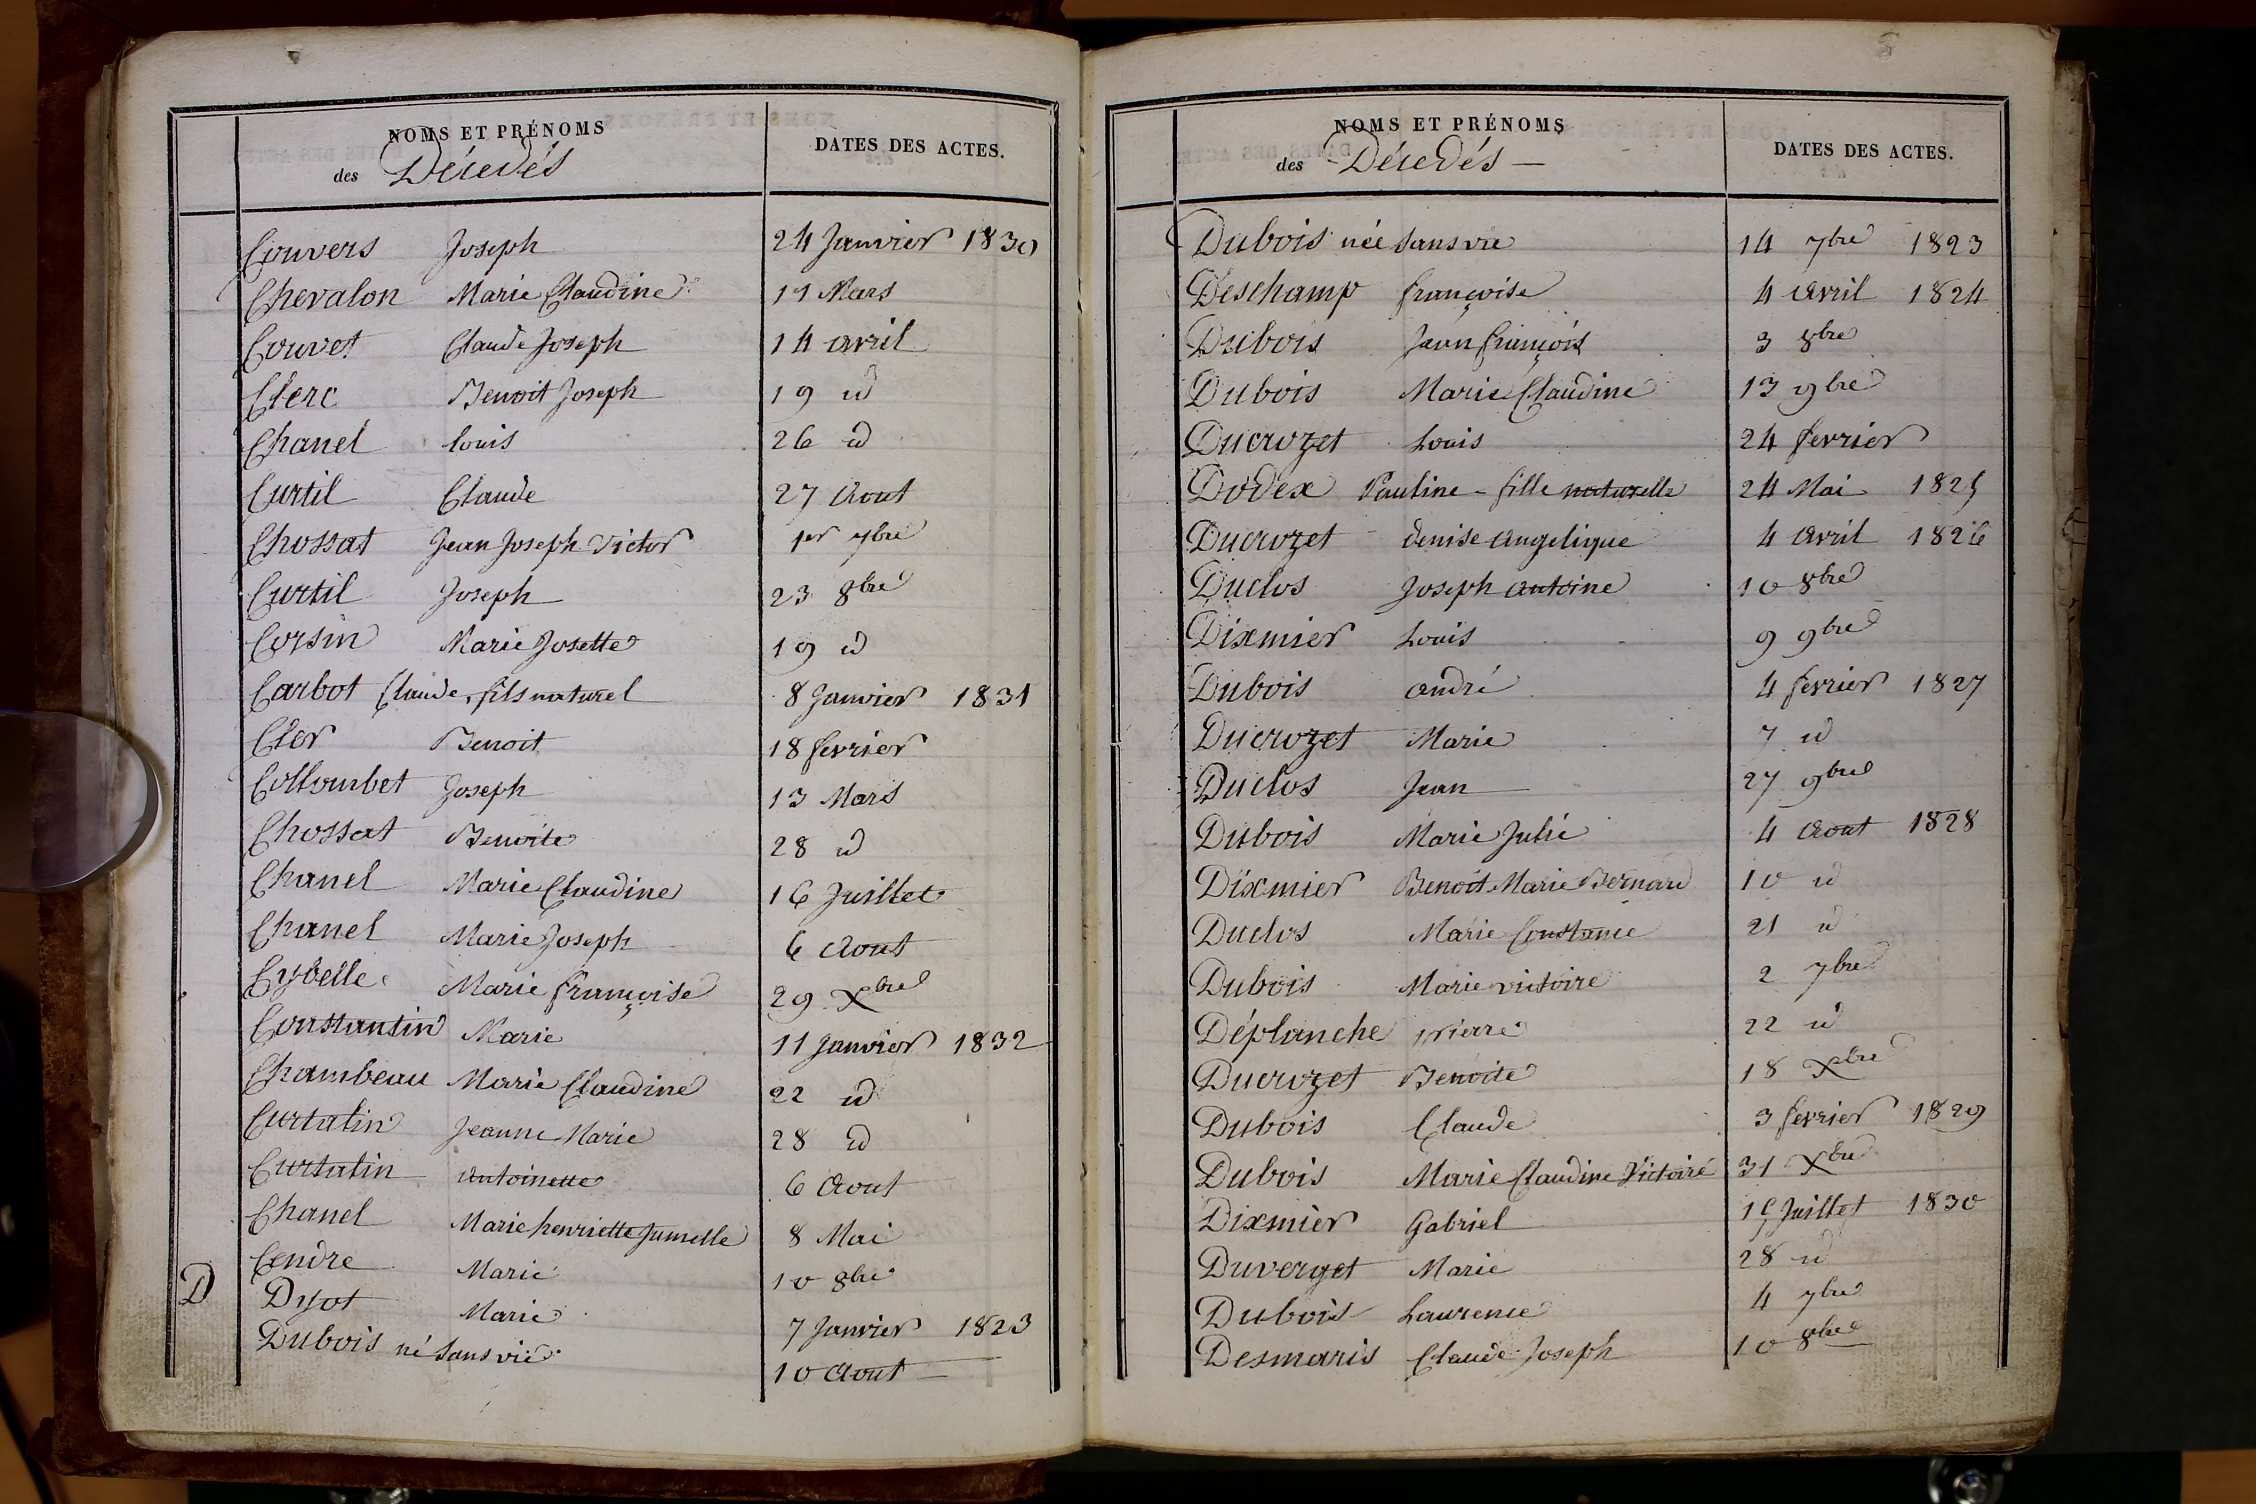 NOMS ET PRÉNOMS
des Décédés
DATES DES ACTES.
Couvers Joseph 24 Janvier 1830
Chevalon Marie Claudine 11 Mars
Couvet Claude Joseph 14 avril
Clerc Benoit Joseph 19 id
Chanel louis 26 id
Curtil Claude 27 Aout
Chossat Jean Joseph Victor 1er 7bre
Curtil Joseph 23 8bre
Corsin Marie Josette 19 id
Carbot Claude, fils naturel 8 Janvier 1831
Cler Benoit 18 fevrier
Collombet Joseph 13 Mars
Chossat Benoite 28 id
Chanel Marie Claudine 16 Juillet
Chanel Marie Joseph 6 Aout
Cybelle Marie françoise 29 Xbre
Constantin Marie 11 Janvier 1832
Chambeau Marie Claudine 22 id
Curtatin Jeanne Marie 28 id
Curtatin Antoinette 6 Aout
Chanel Marie henriette Jumelle 8 Mai
Cendre Marie 10 8bre
D Dyot Marie 7 Janvier 1823
Dubois né sans vie 10 Aout
NOMS ET PRÉNOMS
des Décédés
DATES DES ACTES.
Dubois née sans vie 14 7bre 1823
Deschamp françoise 4 avril 1824
Dubois Jean françois 3 8bre
Dubois Marie Claudine 13 9bre
Ducrozet Louis 24 fevrier
Dodex Pauline - fille naturelle 24 Mai 1825
Ducrozet denise Angelique 4 Avril 1826
Duclos Joseph Antoine 10 8bre
Dixmier Louis 9 9bre
Dubois andré 4 fevrier 1827
Ducrozet Marie 7 id
Duclos Jean 27 9bre
Dubois Marie Julie 4 Aout 1828
Dixmier Benoit Marie Bernard 10 id
Duclos Marie Constance 21 id
Dubois Marie victoire 2 7bre
Déplanche pierre 22 id
Ducrozet Benoite 18 Xbre
Dubois Claude 3 fevrier 1829
Dubois Marie Claudine Victoire 31 Xbre
Dixmier Gabriel Juillet 1830
Duverget Marie 28 id
Dubois Laurence 4 7bre
Desmaris Claude Joseph 10 8bre